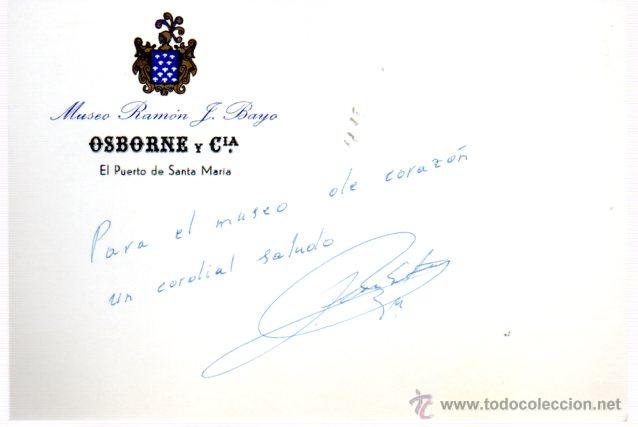 Museo Ramón J. Bayo
OSBORNE Y CIA.
El Puerto de Santa María
Para el museo de corazón
un cordial saludo
TC www.todocoleccion.net